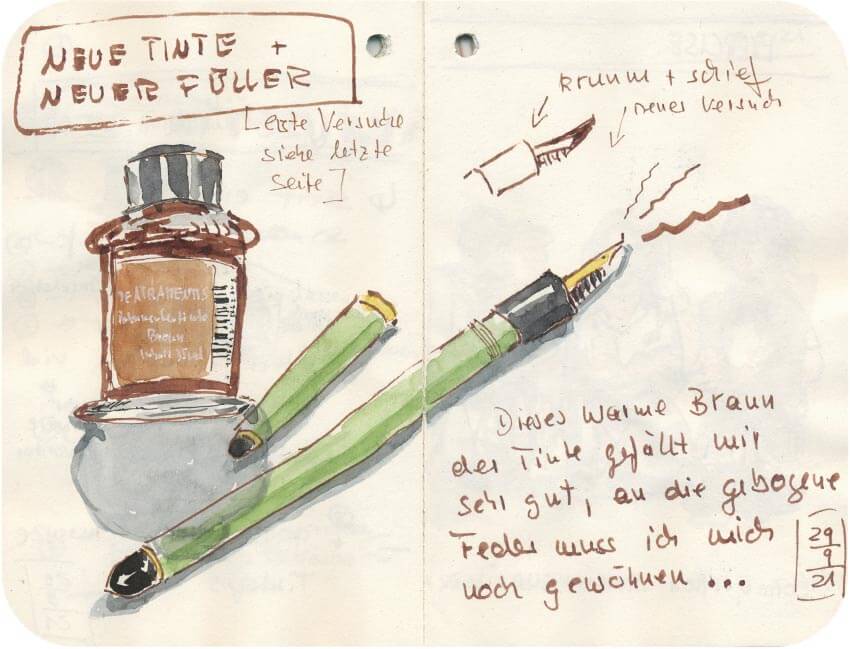 NEUE TINTE +
NEUER FÜLLER
[Letzte Versuche
siehe letzte
Seite]
DE ATRAMENTIS
Braun
Inhalt 35ml
Krumm + schief
neues Versuch
Dieses warme Braun
der Tinte gefällt mir
sehr gut, an die gebogene
Feder muss ich mich
noch gewöhnen ...
29
9
21